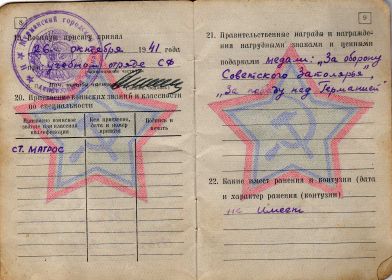 8
19. Военную присягу принял
26 октября 1941 года
при учебном отряде СФ
20. Присвоение воинских званий и классности
по специальности
Присвоено воинское
звание или классная
квалификация
Кем присвоено,
дата и номер
приказа
Подпись и
печать
СТ. МАТРОС
9
21. Правительственные награды и награждения
нагрудными знаками и ценными
подарками медаль: „За оборону
Советского Заполярья",
„За победу над Германией"
22. Какие имеет ранения и контузии (дата
и характер ранения (контузии)
не имеет